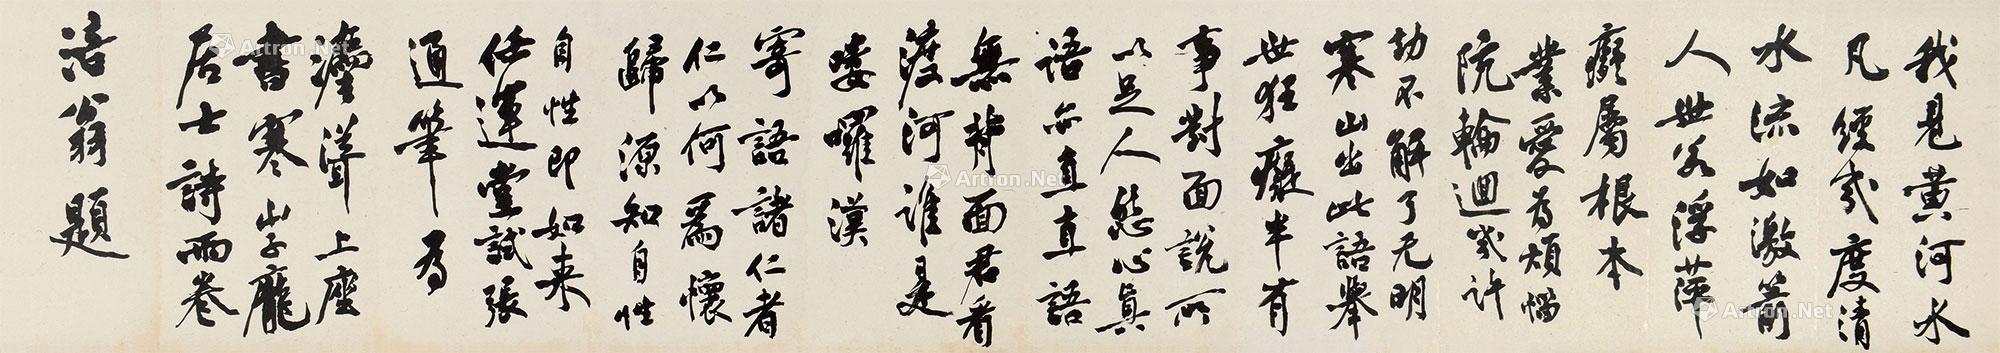 我見黃河水
凡經幾度清
水流如激箭
人世若浮萍
癡屬根本
業愛為煩惱
院輪迴幾許
劫不解了无明
寒山出此語舉
世狂癡半有
事對面說所
以足人怨心真
語亦直直語
無背面君看
渡河誰是
嘍囉漢
寄語諸仁者
仁以何為懷
歸源知自性
自性即如来
任運堂試張
通筆為
瀘聳上座
書寒山子龐
居士詩兩卷
涪翁題
Artron.Net
Artron.Net
Artron.Net
Artron.Net
Artron.Net